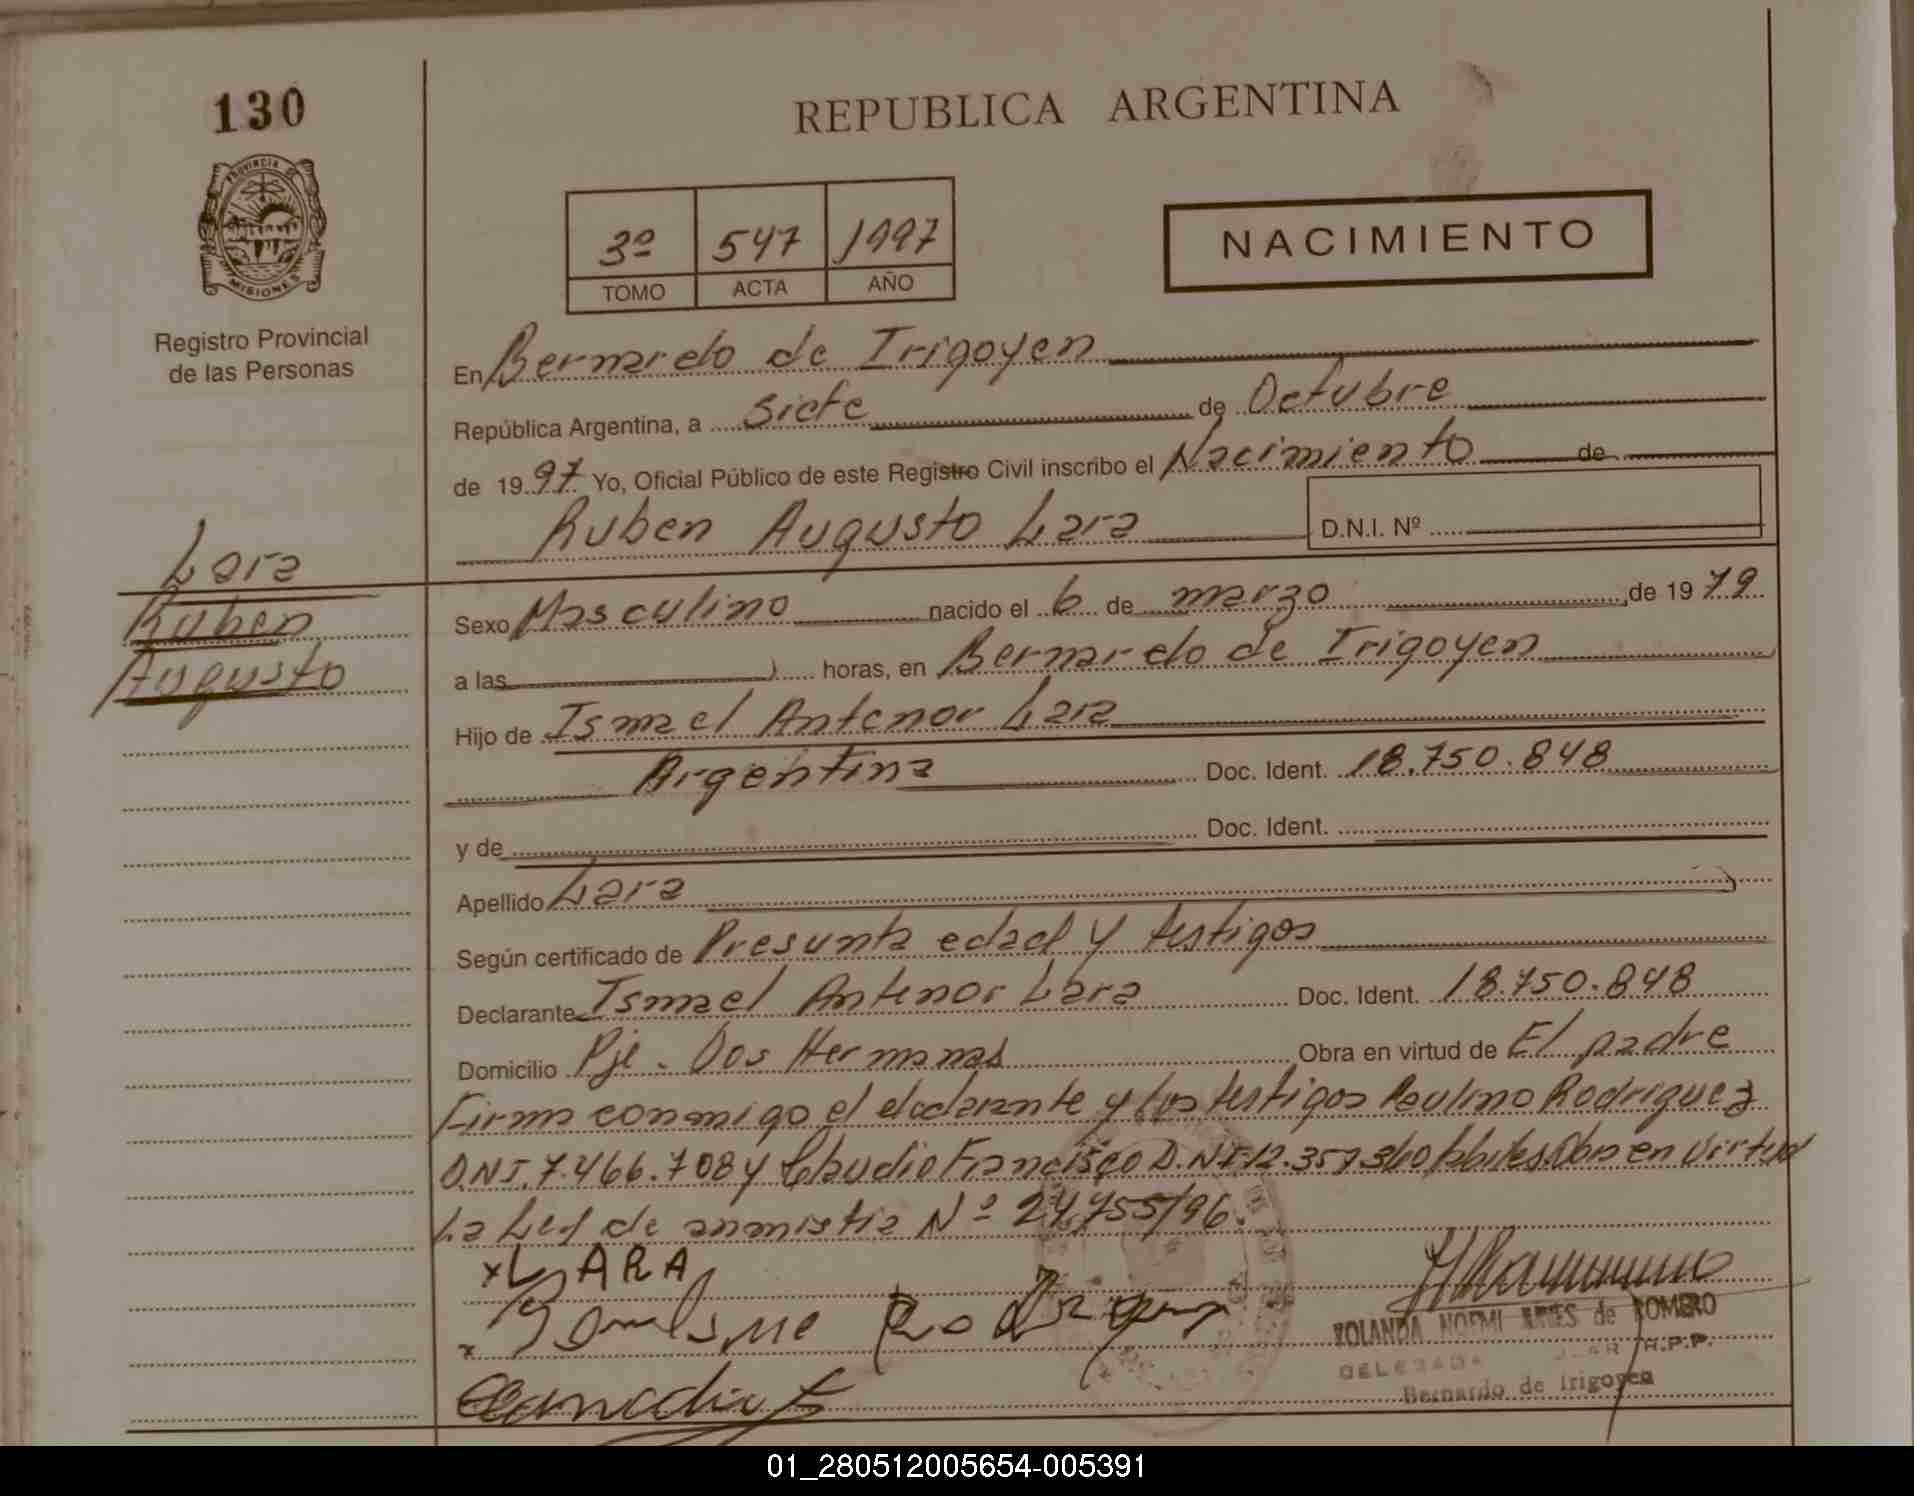 130
PROVINCIA DE
MISIONES
Registro Provincial
de las Personas
Lara
Ruben
Augusto
REPUBLICA ARGENTINA
3º 547 1997
TOMO ACTA AÑO
NACIMIENTO
En Bernardo de Irigoyen
República Argentina, a siete de Octubre
de 1997 Yo, Oficial Público de este Registro Civil inscribo el Nacimiento de
Ruben Augusto Lara D.N.I. Nº
Sexo Masculino nacido el 6 de marzo de 1979
a las horas, en Bernardo de Irigoyen
Hijo de Ismael Antenor Lara
Argentina Doc. Ident. 18.750.848
y de Doc. Ident.
Apellido Lara
Según certificado de Presunta edad y testigos
Declarante Ismael Antenor Lara Doc. Ident. 18.750.848
Domicilio Pje. Dos Hermanas Obra en virtud de El padre
Firma conmigo el declarante y los testigos Paulino Rodriguez
D.N.I. 7.466.708 y Claudio Francisco D.N.I. 12.357. en virtud
La Ley de amnistia Nº 24755/96.
x LARA
x Rodriguez
YOLANDA NOEMI de ROMERO
DELEGADA R.P.P.
Bernardo de Irigoyen
01_280512005654-005391